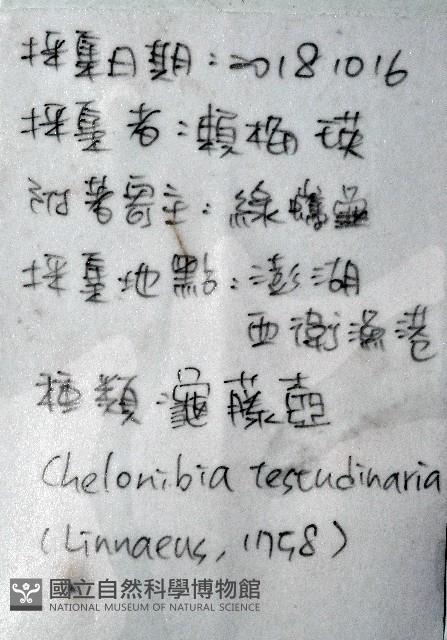 採集日期:20181016
採集者:賴梅瑛
附著宿主:綠蠵龜
採集地點:澎湖
西衛漁港
種類:龜藤壺
Chelonibia testudinaria
(Linnaeus, 1758)
國立自然科學博物館
NATIONAL MUSEUM OF NATURAL SCIENCE